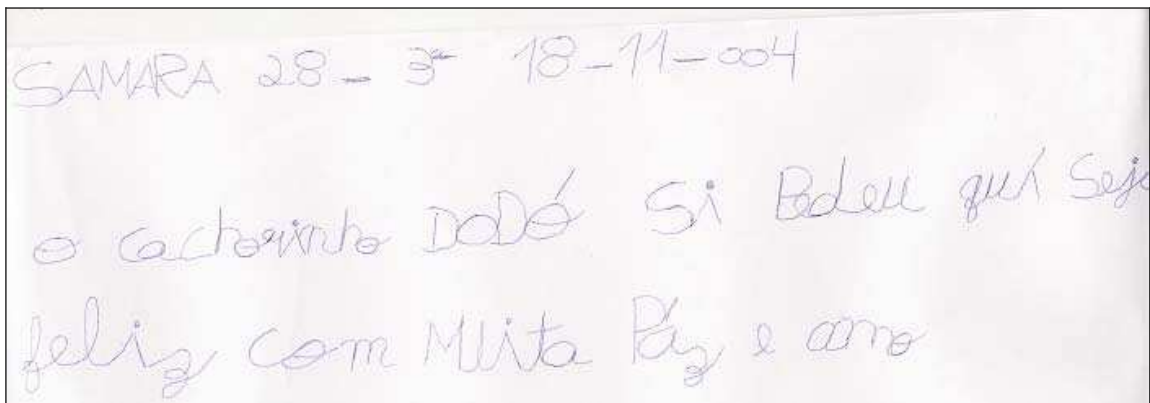 SAMARA 28 - 3ª 18-11-004
o cachorinho DODÓ Si Pedeu quí Seja
feliz com Muita Páz e amo